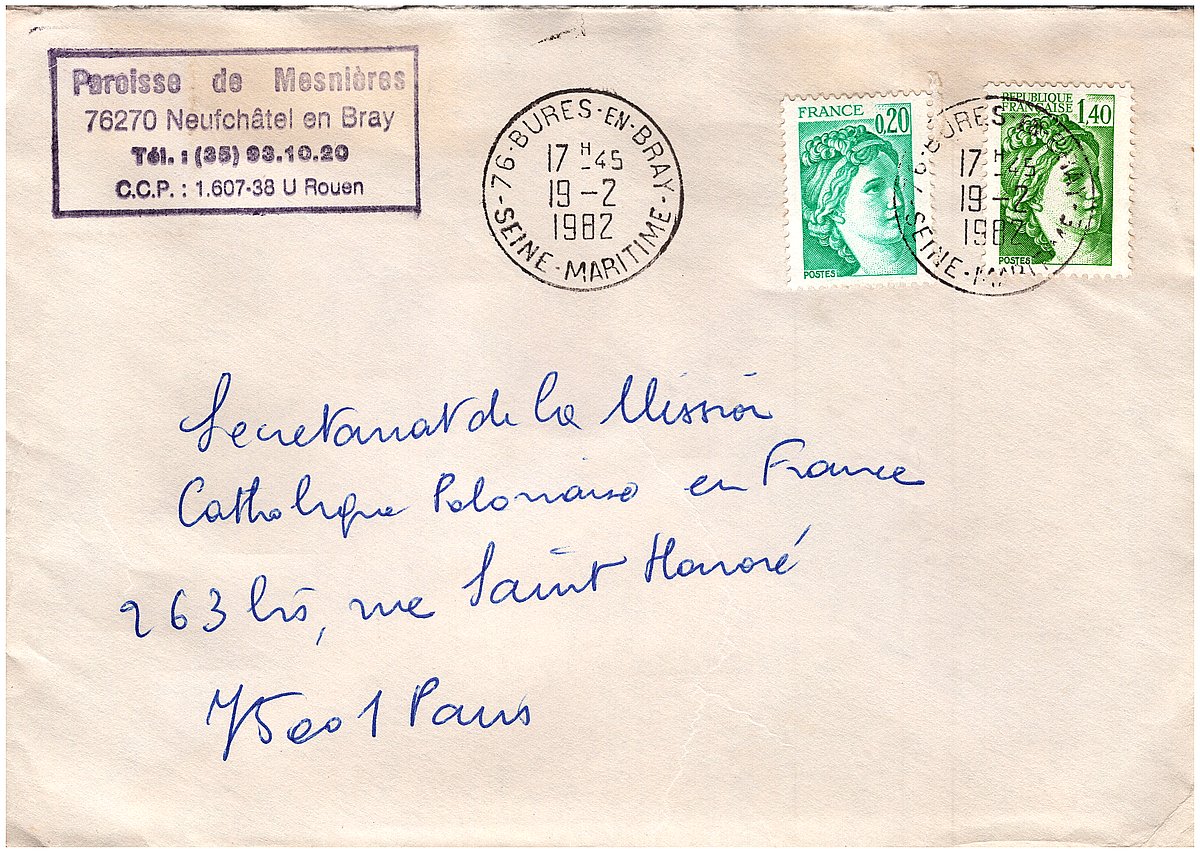 Paroisse de Mesnières
76270 Neufchâtel en Bray
Tél. : (35) 93.10.20
C.C.P. : 1.607-38 U Rouen
76-BURES-EN-BRAY
17 H 45
19-2
1982
SEINE-MARITIME
FRANCE
0,20
POSTES
REPUBLIQUE
FRANÇAISE 1,40
POSTES
76 BURES EN BRAY
17 H 45
19-2
1982
SEINE-MARITIME
Secretariat de la Mission
Catholique Polonaise en France
263 bis, rue Saint Honoré
75001 Paris